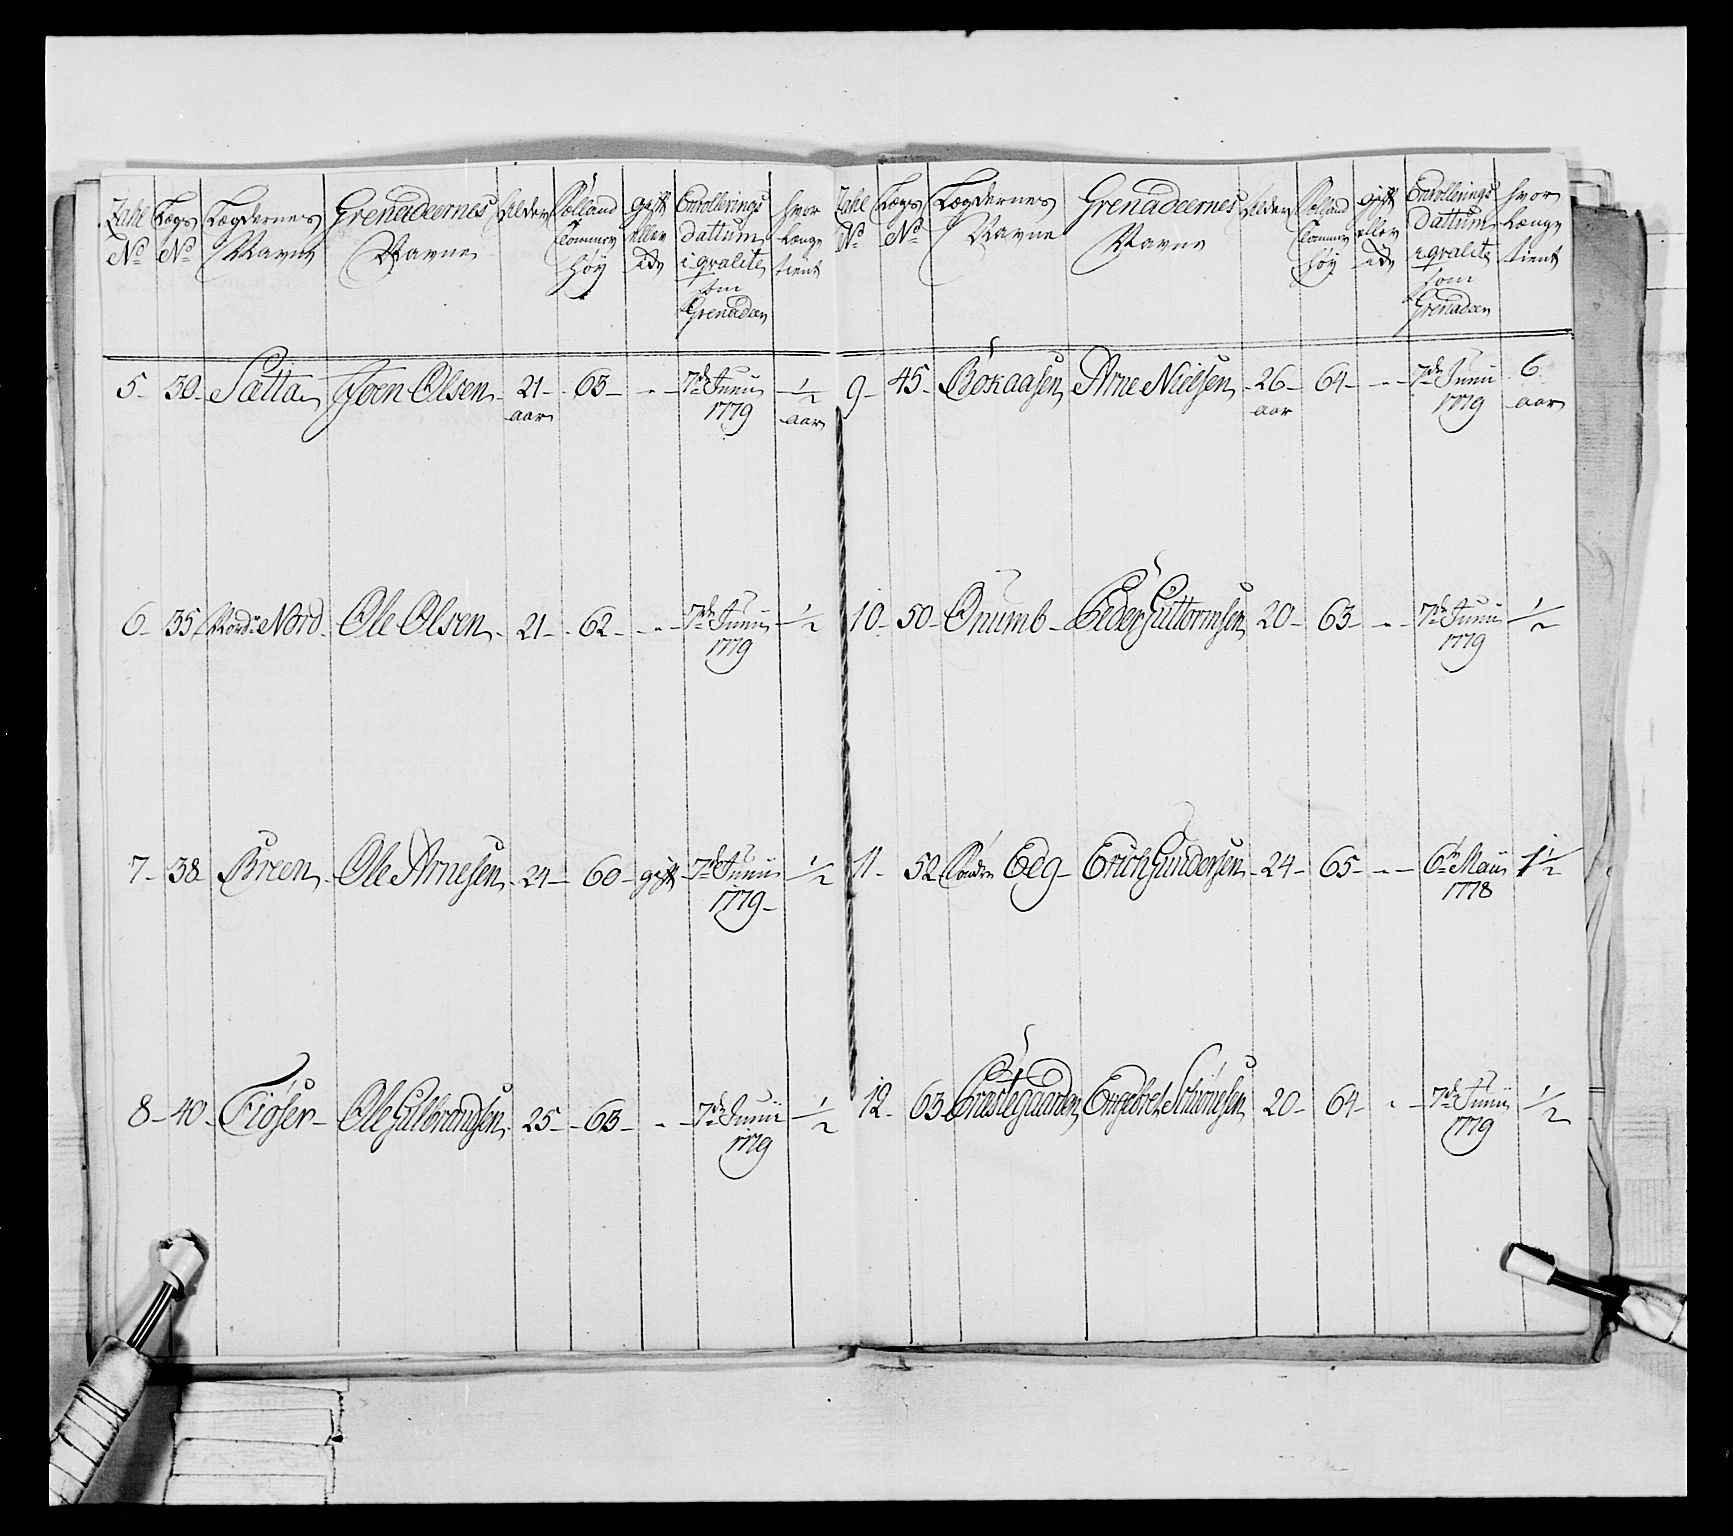 Zahl No | Lægs No | Lægdernes Navne | Grenadeernes Navne | Alder | Tommer høy | gift eller ide | Enrollerings dattum i qvalite som Grenadeer | hvor længe tient
5 - 30 - Sætta - Joen Olsen - 21 aar - 63 - " - 7de Junii 1779 - 1/2 aar
6 - 35 - Nord - Ole Olsen - 21 - 62 - " - 7de Junii 1779 - 1/2
7 - 38 - Breen - Ole Arnesen - 24 - 60 - gift - 7de Junii 1779 - 1/2
8 - 40 - Fiøser - Ole Gulbrandsen - 25 - 63 - " - 7de Junii 1779 - 1/2
Zahl No | Lægs No | Lægdernes Navne | Grenadeernes Navne | Alder | Tommer høy | gift eller ide | Enrollerings dattum i qvalite som Grenadeer | hvor længe tient
9 - 45 - Bøkaasen - Arne Nielsen - 26 aar - 64 - " - 7de Junii 1779 - 6 aar
10 - 50 - Qnumb - Peder Guttormsen - 20 - 63 - " - 7de Junii 1779 - 1/2
11 - 52 - Søndre Eeg - Erich Gundersen - 24 - 65 - " - 6te Maii 1778 - 1 1/2
12 - 63 - Præstegaarden - Engebret Schiønesen - 20 - 64 - " - 7de Junii 1779 - 1/2